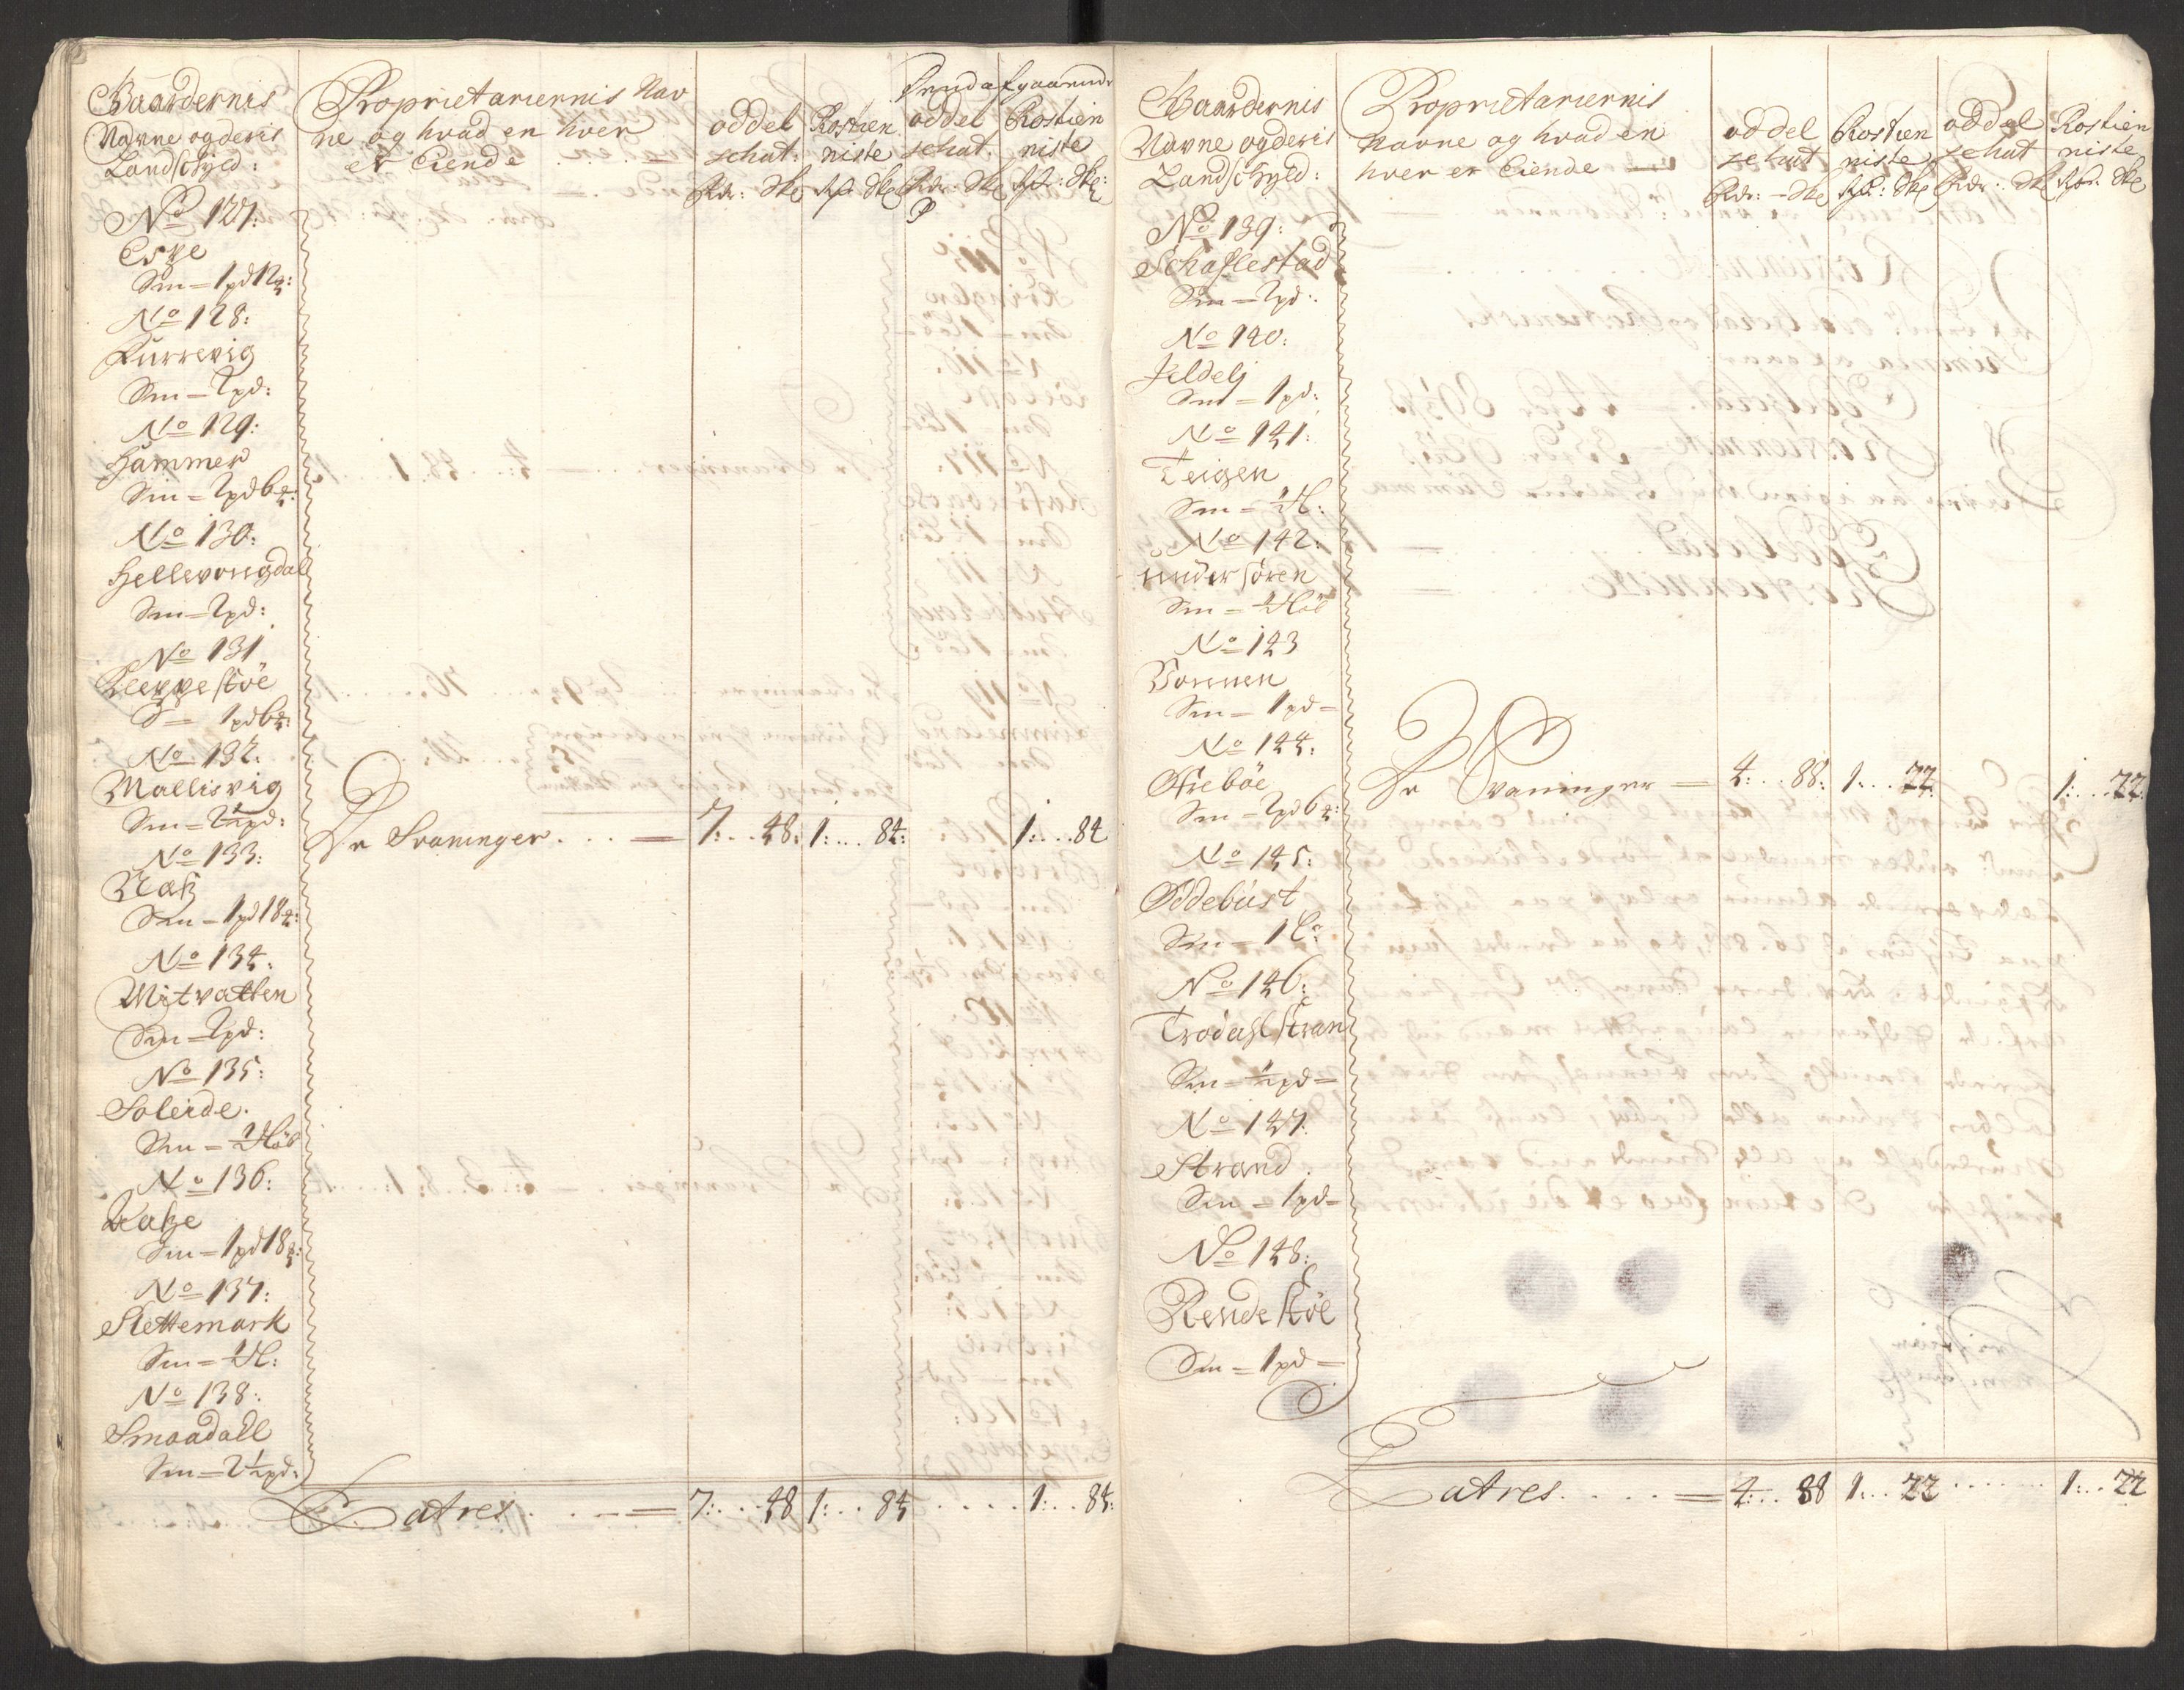 Gaardernis
Navne og deris
Landschyld:
Proprietariernis Nav
ne og hvad en hver
er Eiende
oddel
schat:
Rdr: ske
Rostien
niste
Rdr: ske
afgaaende
oddel
schat.
Rdr: ske
Rostien
niste
Rdr: ske:
No 127:
Eske
Sm = 1 pd 12
No 128:
Kurrevig
Sm = 2 pd:
No 129:
Hammer
Sm = 2 pd 6
No 130:
Hellevongdal
Sm = 2 pd:
No 131
Kleppestöe
S = 1 pd 6
No 132:
Mallisvig
Sm = 2½ pd:
Hr Svaninger . . . = 7: . . 48: 1: . . 84: 1: . . 84
No 133:
Sm = 1 pd 18
No 134:
Mitvatten
Sm = 2 pd:
No 135:
Soleide.
Sm = ½ Löb
No 136:
Sm = 1 pd 18
No 137:
Slettemark
Sm = ½ L:
No 138:
Smaadall
Sm = 2½ pd:
Latres . . . = 7: . . 48 1: . . 84 . . . . 1: . . 84:
Gaardernis
Navne og deris
Landschyld:
Proprietariernis
Navne og hvad en
hver er Eiende
oddel
schat
Rdr: ske
Rostien
niste
Rdr: ske
oddel
schat
Rdr: sk
Rostien
niste
Rdr: ske
No 139:
Schaflestad
Sm = 2 pd:
No 140:
Jeldeli
Sm = 1 pd:
No 141:
Teigen
Sm = ½ L:
No 142:
undersören
Sm = ½ Löb
No 143
Vonnen
Sm = 1 pd =
No 144:
Ofreböe
Sm = 2 pd 6
Hr Svaninger = 4: . . 88: 1: . . 22: 1: . . 22:
No 145:
Oddebust
Sm = 1 L:
No 146:
Trodahl stran
Sm = ½ pd =
No 147:
Strand.
Sm = 1 pd =
No 148:
Rendestöe
Sm = 1 pd =
Latres . . . . = 4: . . 88 1: . . 22 . . . . . 1: . . 22